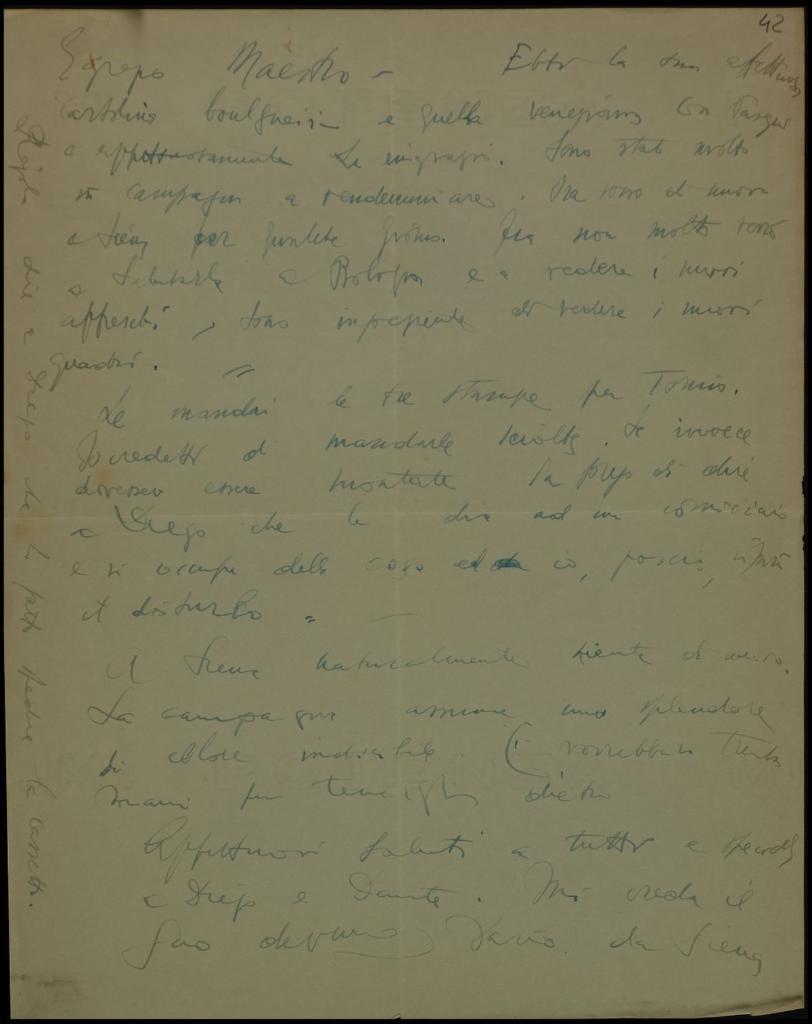 42
Egregio Maestro – Ebbi la sua affettuosa
cartolina e quella veneziana con
e affettuosamente La ringrazio. Sono stato molto
in campagna a vendemmiare. Ora sono di nuovo
a Siena per qualche giorno. Fra non molto verrò
a salutarla a Bologna e a vedere i nuovi
affreschi, sono impaziente di vedere i nuovi
quadri. =
Le mandai le tre stampe per
Credetti di mandarle sciolte. Se invece
dovessero essere montate la prego di dire
a Diego che le dia ad un corniciaio
e si occupi della cosa
il disturbo =
A Siena naturalmente niente di nuovo.
La campagna assume uno splendore
di colore indicibile. Ci vorrebbero trenta
mani per tenergli dietro
Affettuosi saluti a tutti e
a Diego e Dante. Mi creda il
Suo da Siena
dire a Diego che la cassetta.